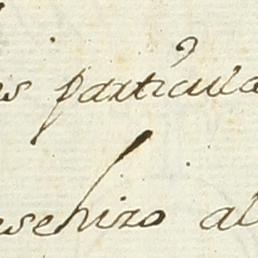 es particula
esehizo al